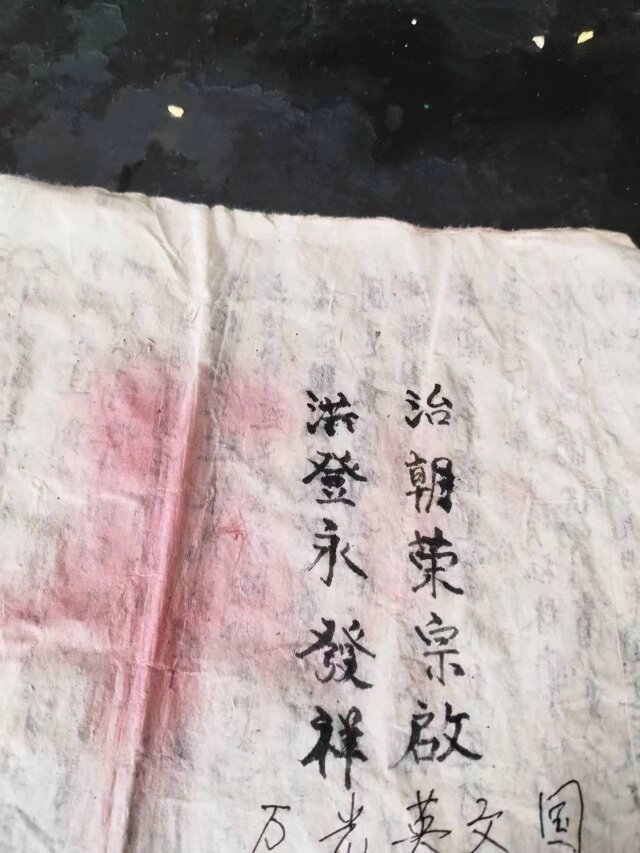 治朝荣宗啟
洪登永發祥
万光英文国